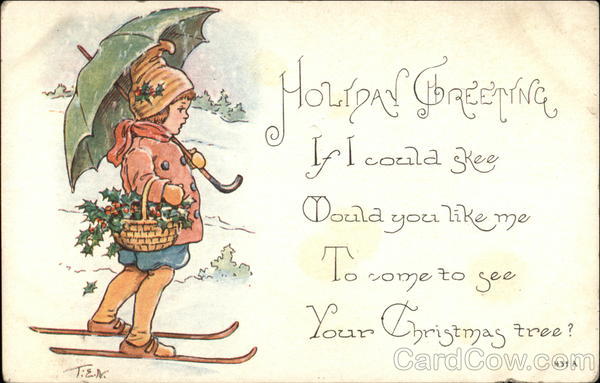 Holiday Greeting
If I could skee
Would you like me
To come to see
Your Christmas tree?
T.E.N.
CardCow.com